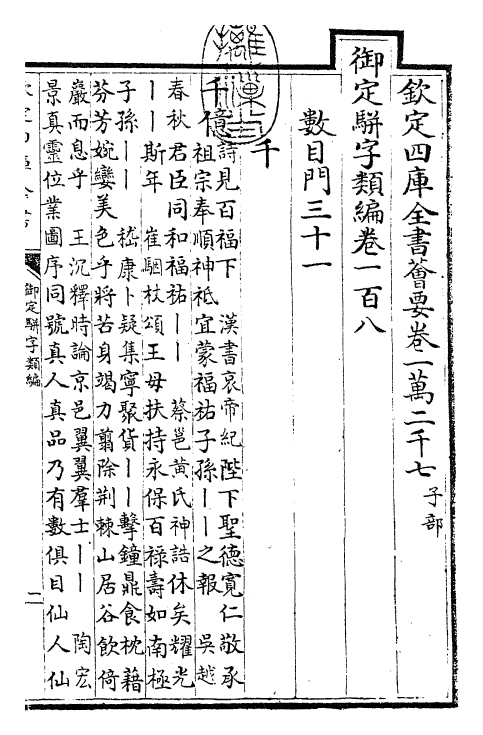 欽定四庫全書薈要卷一萬二千七 子部
御定駢字類編卷一百八
數目門三十一
千
千億 詩見百福下 漢書哀帝紀陛下聖德寬仁敬承
祖宗奉順神祗宜蒙福祐子孫丨丨之報 吳越
春秋君臣同和福祐丨丨 蔡邕黃氏神誥休矣耀光
丨丨斯年 崔駰杖頌王母扶持永保百祿壽如南極
子孫丨丨 嵇康卜疑集寧聚貨丨丨擊鐘鼎食枕藉
芬芳婉孌美色乎將苦身竭力翦除荆棘山居谷飲倚
巖而息乎 王沉釋時論京邑翼翼羣士丨丨 陶宏
景真靈位業圖序同號真人真品乃有數俱目仙人仙
御定駢字類編
二